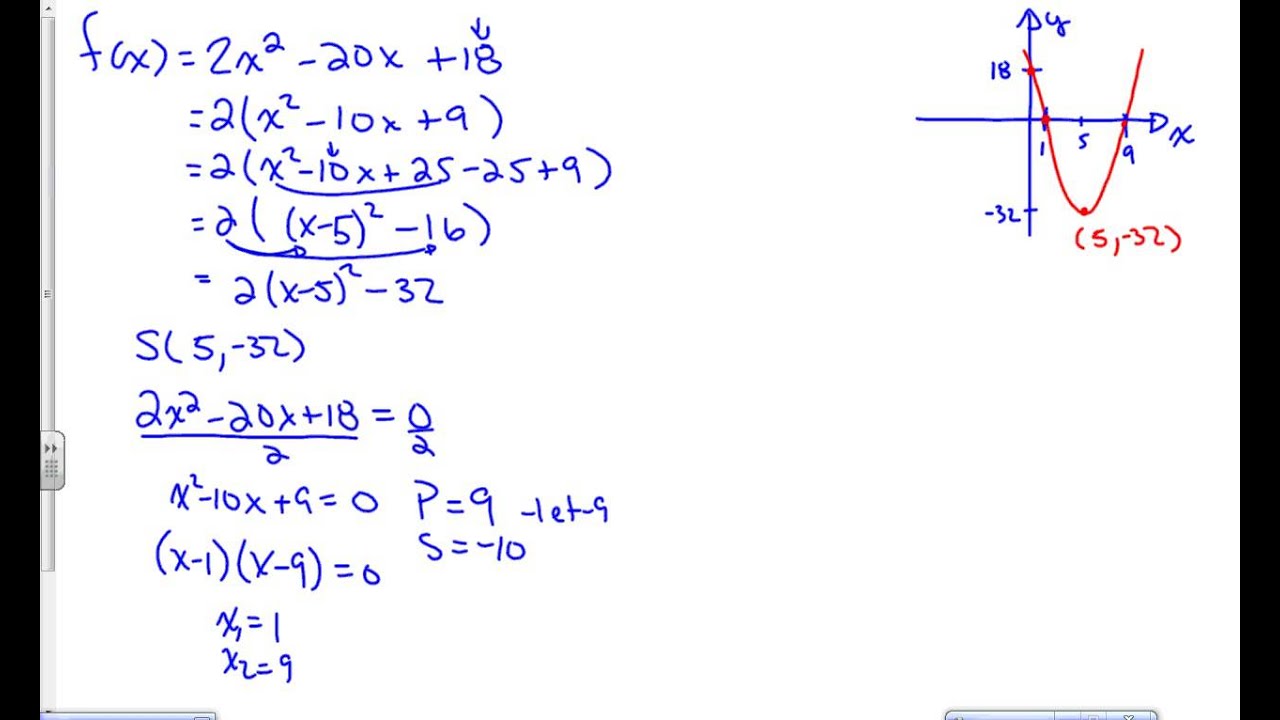 f(x) = 2x² - 20x + 18
= 2(x² - 10x + 9)
= 2(x² - 10x + 25 - 25 + 9)
= 2((x-5)² - 16)
= 2(x-5)² - 32
S(5,-32)
(2x² - 20x + 18)/2 = 0/2
x² - 10x + 9 = 0 P = 9 -1 et -9
S = -10
(x-1)(x-9) = 0
x₁ = 1
x₂ = 9
y
18
1 5 9 x
-32
(5,-32)